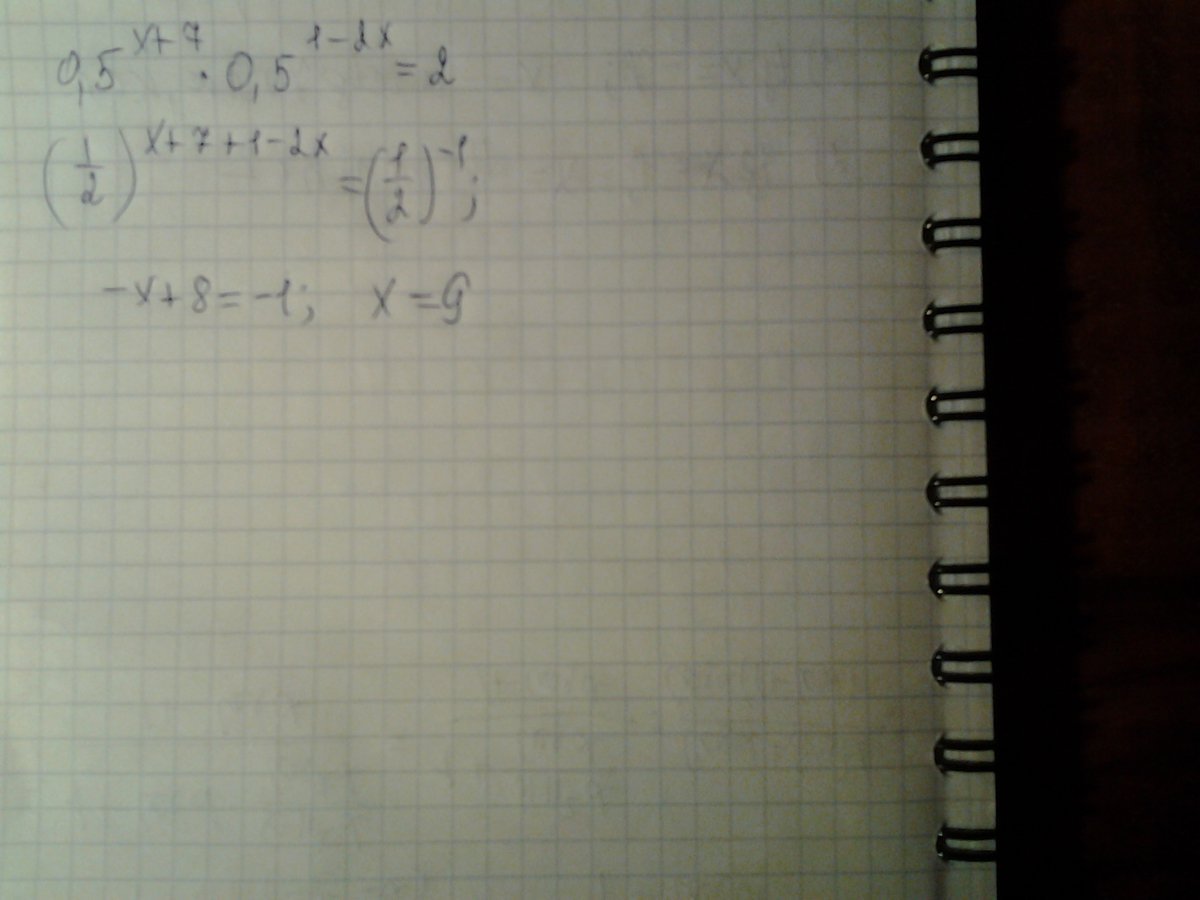 0,5^(x+7) · 0,5^(1-2x) = 2
(1/2)^(x+7+1-2x) = (1/2)^(-1);
-x+8=-1; x=9